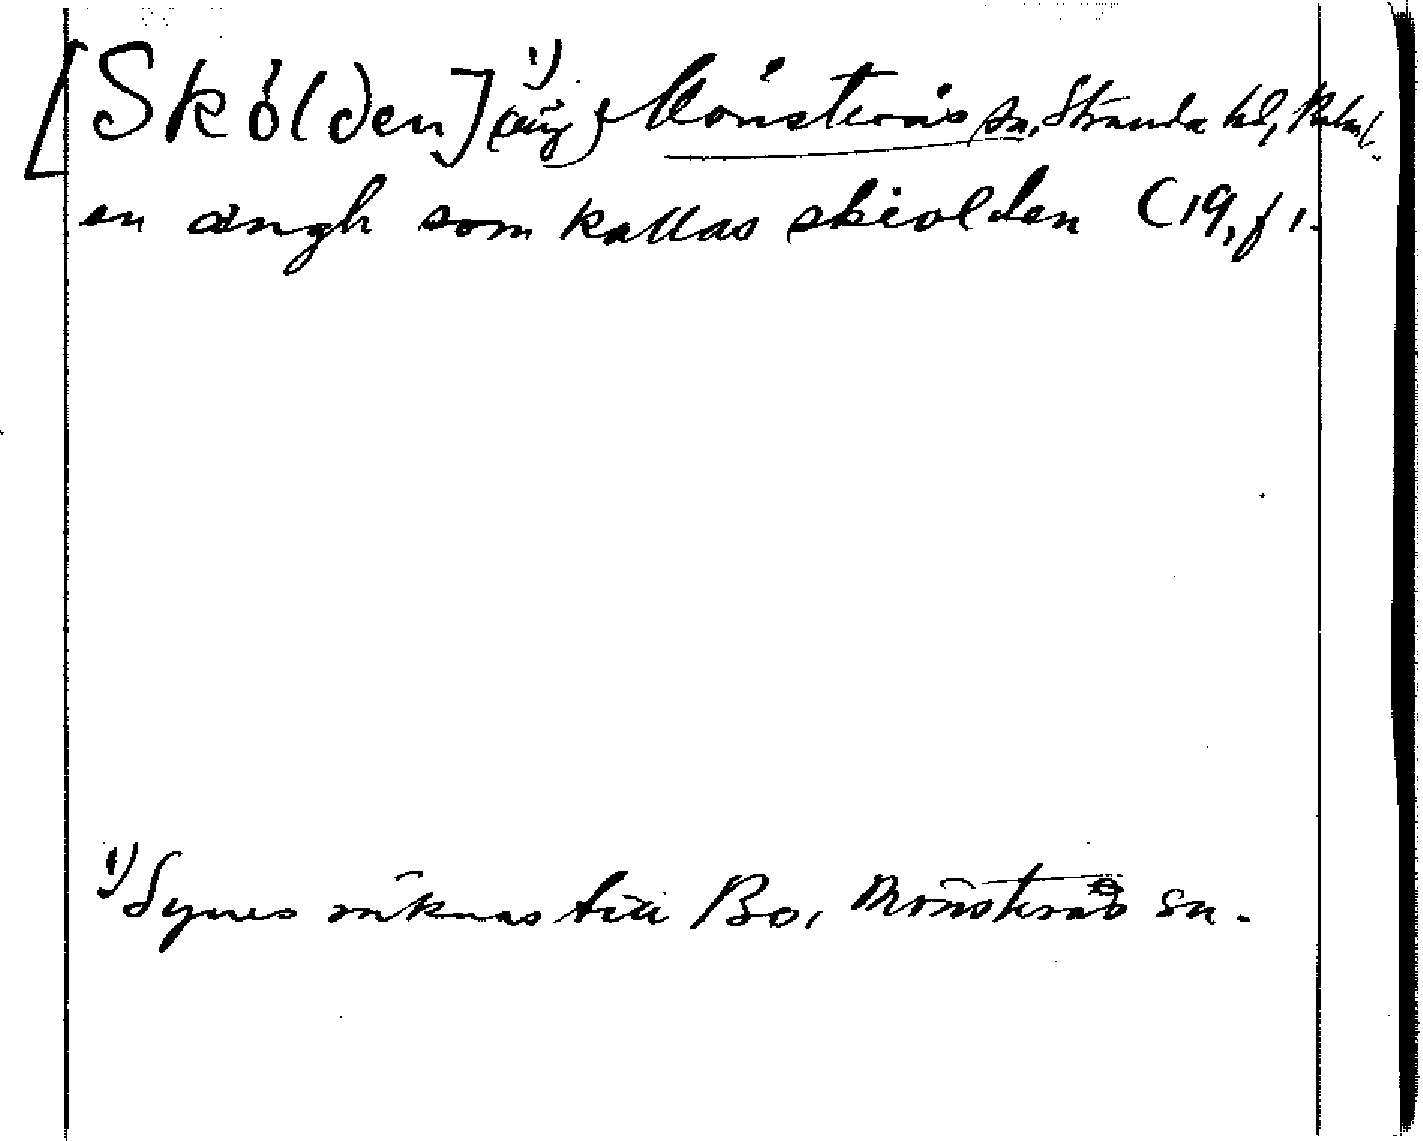 [Skölden] 1) (äng) Mönsterås sn, Stranda hd, Kalm.
en ængh som kallas skiolden C 19, f 1.
1) Synes räknas till Bo, Mönsterås sn.